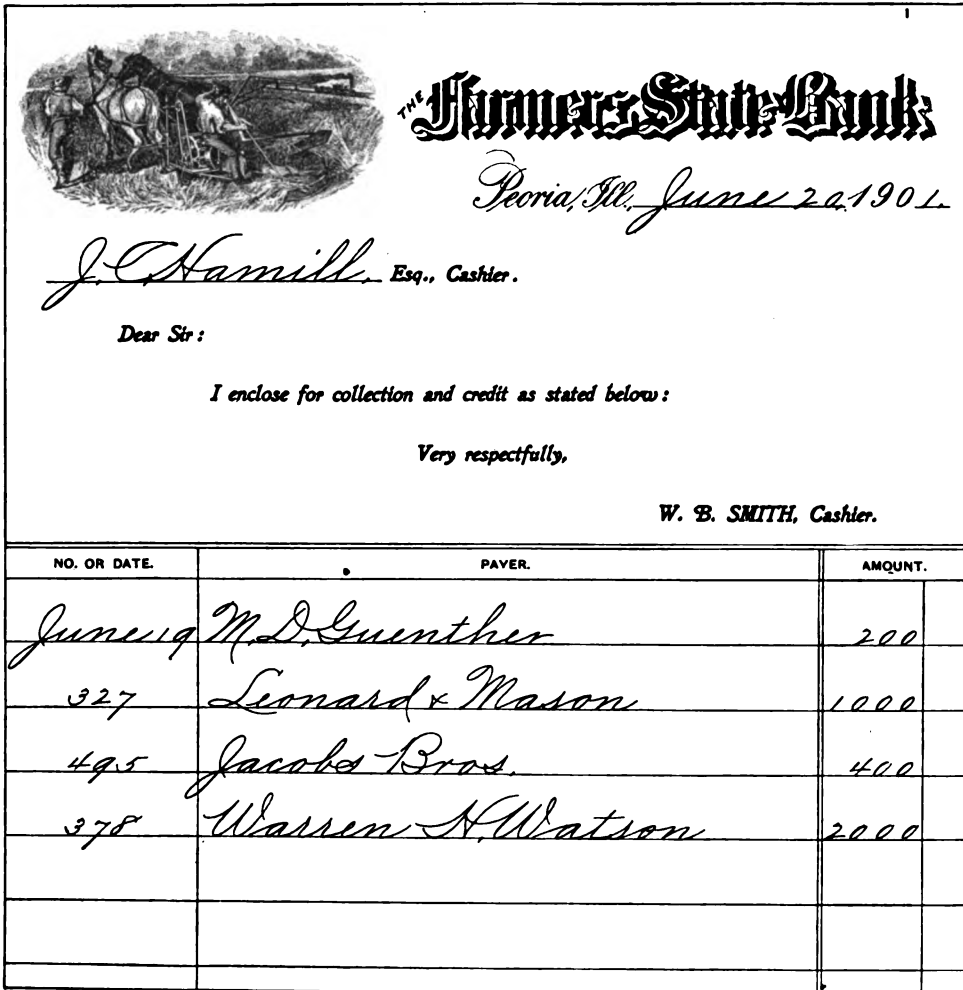 THE Farmers State Bank
Peoria, Ill. June 20 1901.
J. C. Hamill, Esq., Cashier.
Dear Sir:
I enclose for collection and credit as stated below:
Very respectfully,
W. B. SMITH, Cashier.
NO. OR DATE. PAYER. AMOUNT.
June 19 M. D. Guenther 200
327 Leonard & Mason 1000
495 Jacobs Bros. 400
378 Warren H. Watson 2000